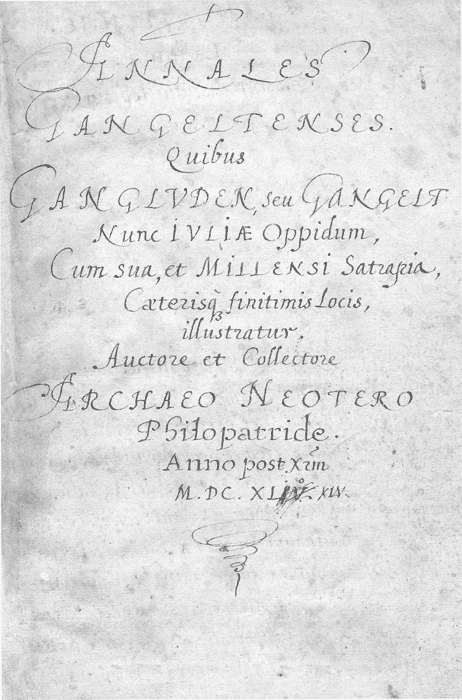 ANNALES
GANGELTENSES.
Quibus
GANGLVDEN, seu GANGELT
Nunc IVLIÆ Oppidum,
Cum sua, et MILLENSI Satrapia,
Cæterisq₃ finitimis Locis,
illustratur.
Auctore et Collectore
ARCHAEO NEOTERO
Philopatride.
Anno post Xr̃m
M. DC. XLIV. XLV.